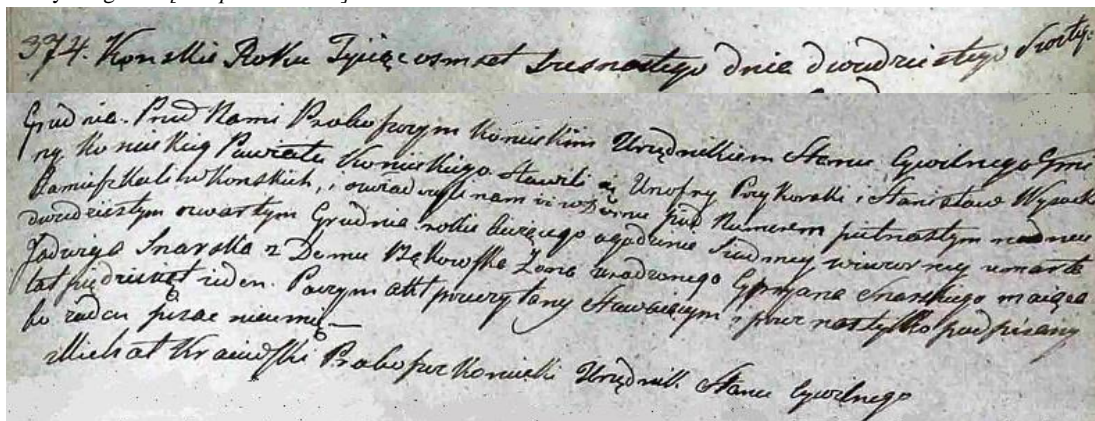 374. Końskie Roku Tysiąc osmset szesnastego dnia dwudziestego szostego
Grudnia. Przed Nami Proboszczym Konieckim Urzędnikiem Stanu Cywilnego Gmi
ny Konieckiey Powiatu Konieckiego Stawili się Unofry Przykorski, Stanisław Wysocki
Zamieszkali w Konskich, i oswiadczyli nam iż w Domu pod Numerem pietnastym na dniu
dwudziestym czwartym Grudnia roku bieżącego o godzinie Siodmey wieczorney umarła
Jadwiga Snarska z Domu Bąkowska Żona urodzonego Cypryana Snarskiego maiąca
lat piędziesiąt ieden. Poczym akt przeczytany Stawaiącym i przez nas tylko podpisany
bo radcu pisac nieumią
Michał Kraiewski Proboszcz Koniecki Urzędnik Stanu Cywilnego